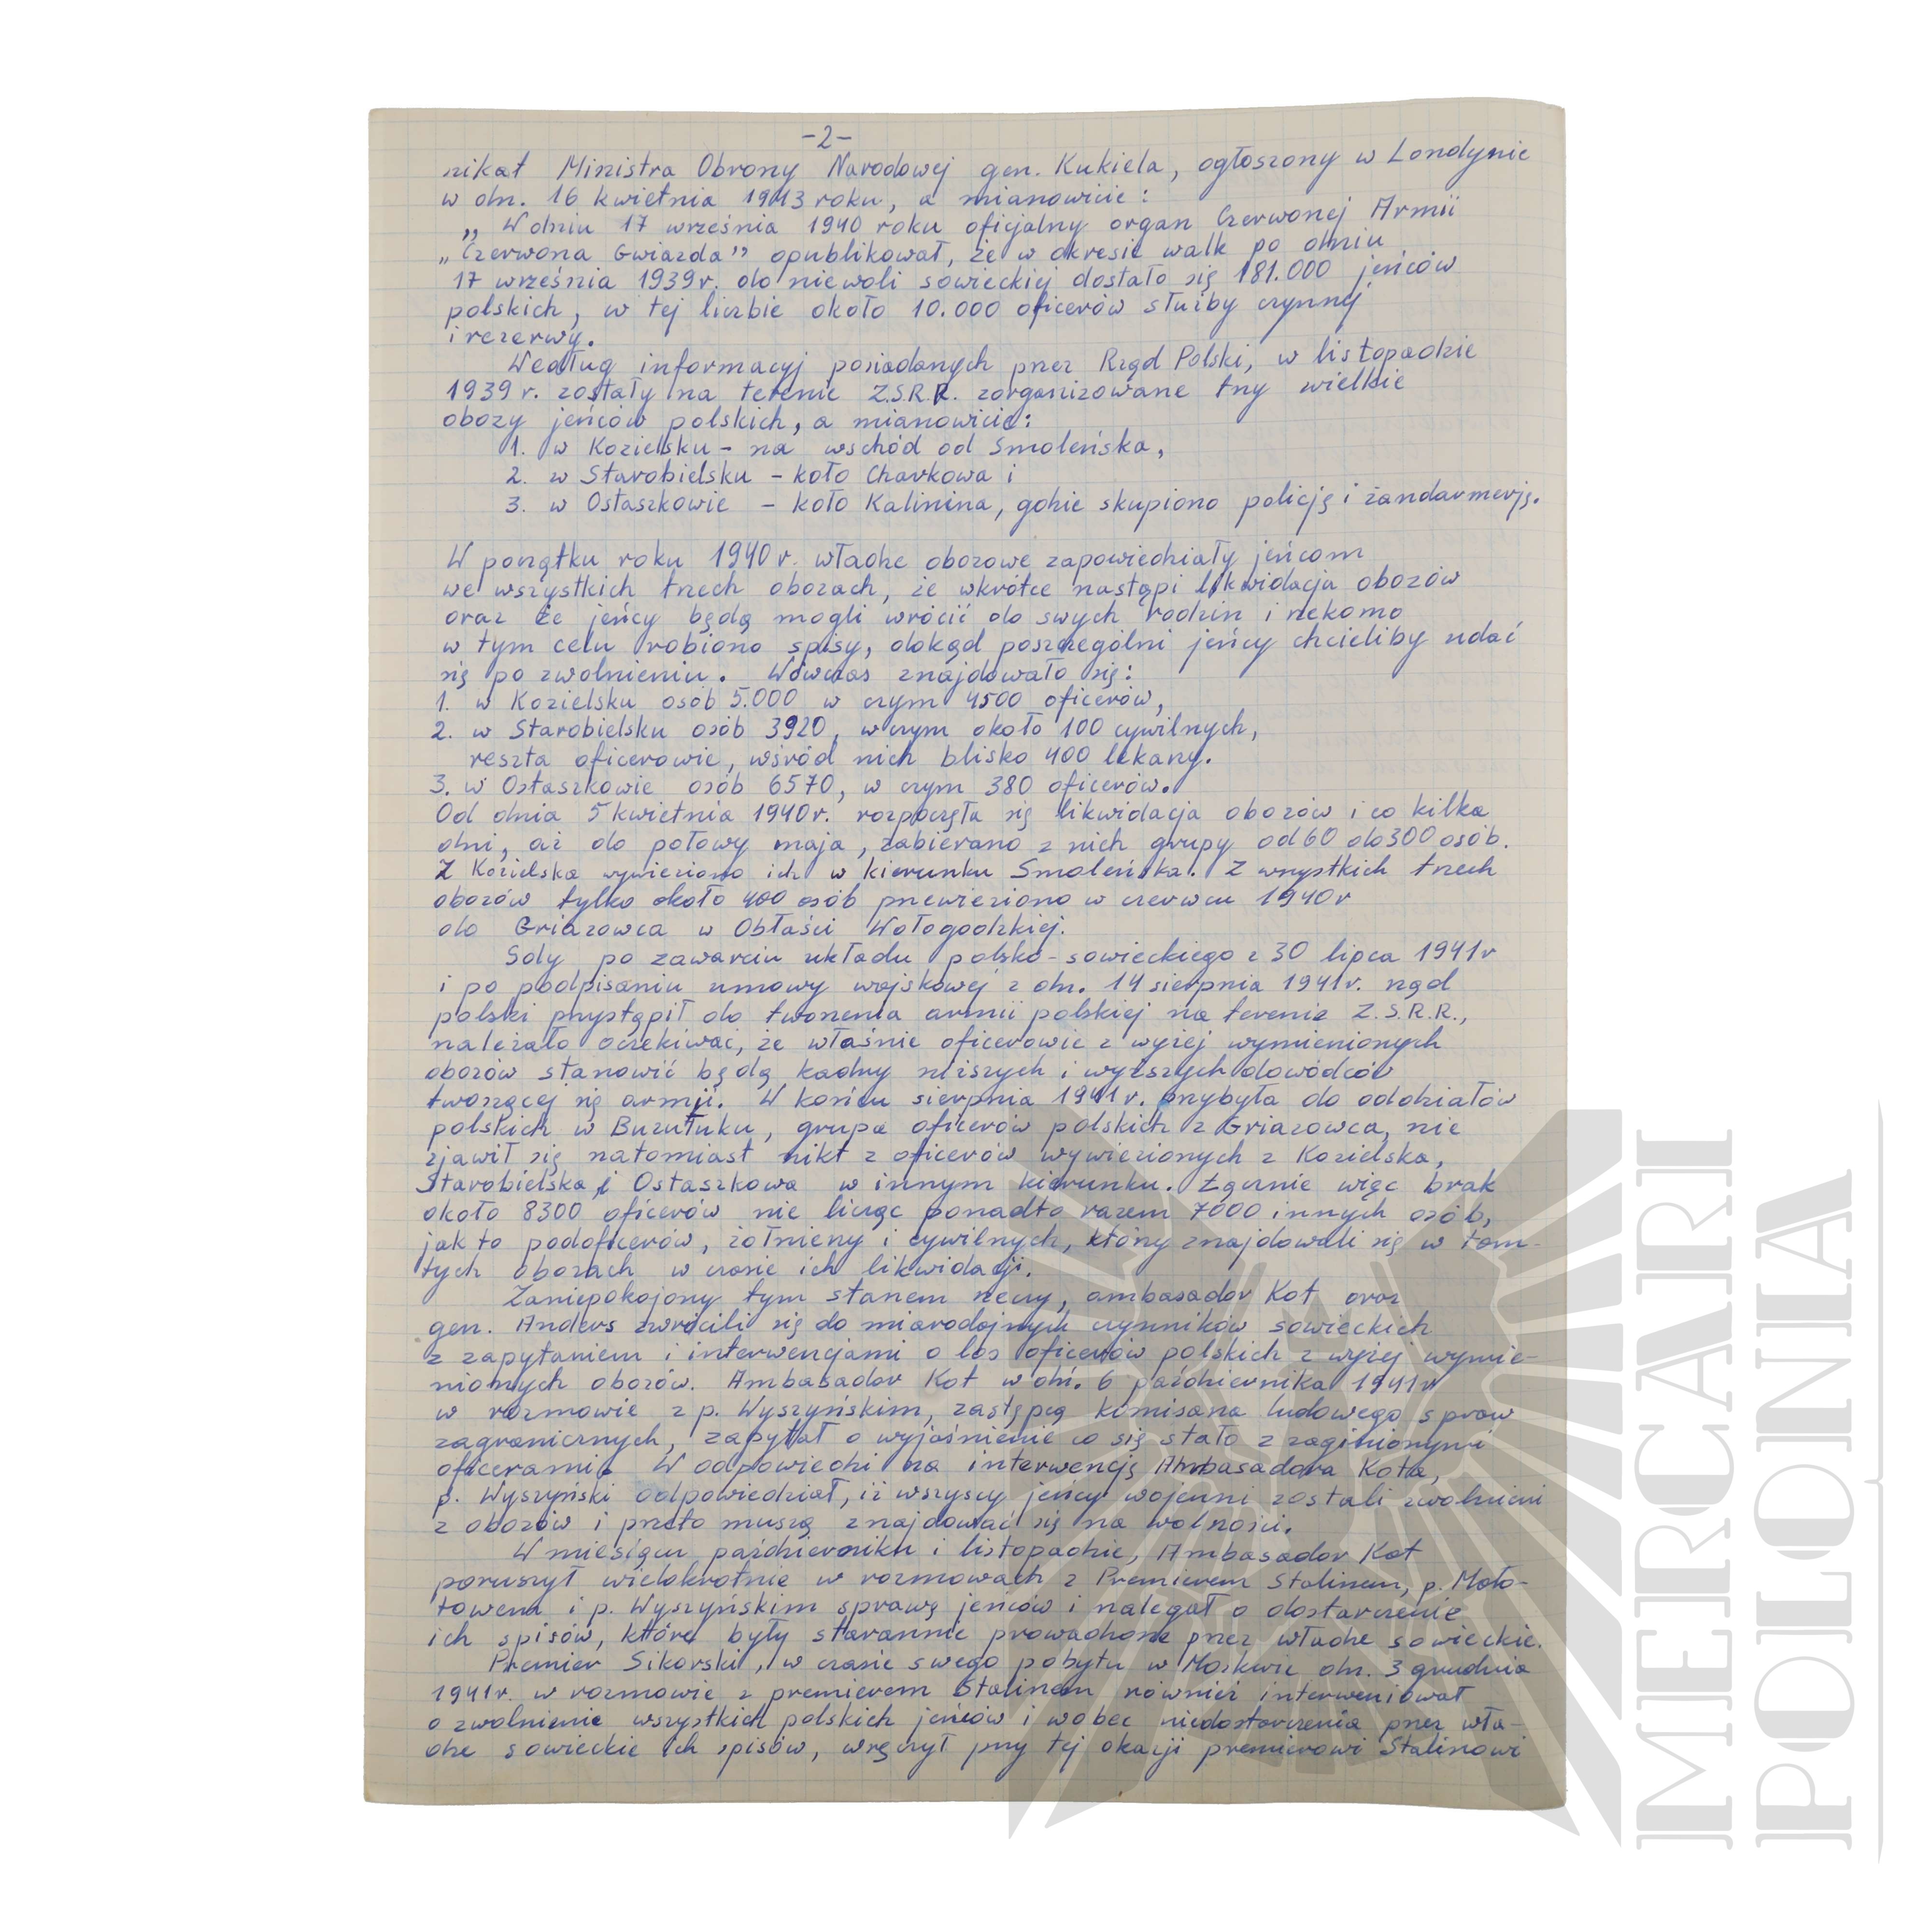 -2-
nikat Ministra Obrony Narodowej gen. Kukiela, ogłoszony w Londynie
w dn. 16 kwietnia 1943 roku, a mianowicie:
„ W dniu 17 września 1940 roku oficjalny organ Czerwonej Armii
„Czerwona Gwiazda” opublikował, że w okresie walk po dniu
17 września 1939 r. do niewoli sowieckiej dostało się 181.000 jeńców
polskich, w tej liczbie około 10.000 oficerów służby czynnej
i rezerwy.
Według informacyj posiadanych przez Rząd Polski, w listopadzie
1939 r. zostały na terenie Z.S.R.R. zorganizowane trzy wielkie
obozy jeńców polskich, a mianowicie:
1. w Kozielsku - na wschód od Smoleńska,
2. w Starobielsku - koło Charkowa i
3. w Ostaszkowie - koło Kalinina, gdzie skupiono policję i żandarmerję.
W początku roku 1940 r. władze obozowe zapowiedziały jeńcom
we wszystkich trzech obozach, że wkrótce nastąpi likwidacja obozów
oraz że jeńcy będą mogli wrócić do swych rodzin i rzekomo
w tym celu robiono spisy, dokąd poszczególni jeńcy chcieliby udać
się po zwolnieniu. Wówczas znajdowało się:
1. w Kozielsku osób 5.000 w czym 4500 oficerów,
2. w Starobielsku osób 3920, w czym około 100 cywilnych,
reszta oficerowie, wśród nich blisko 400 lekarzy.
3. w Ostaszkowie osób 6570, w czym 380 oficerów.
Od dnia 5 kwietnia 1940 r. rozpoczęła się likwidacja obozów i co kilka
dni, aż do połowy maja, zabierano z nich grupy od 60 do 300 osób.
Z Kozielska wywieziono ich w kierunku Smoleńska. Z wszystkich trzech
obozów tylko około 400 osób przewieziono w czerwcu 1940 r
do Griazowca w Obłaści Wołogodzkiej.
Gdy po zawarciu układu polsko-sowieckiego z 30 lipca 1941 r
i po podpisaniu umowy wojskowej z dn. 14 sierpnia 1941 r. rząd
polski przystąpił do tworzenia armii polskiej na terenie Z.S.R.R.,
należało oczekiwać, że właśnie oficerowie z wyżej wymienionych
obozów stanowić będą kadry niższych i wyższych dowódców
tworzącej się armji. W końcu sierpnia 1941 r. przybyła do oddziałów
polskich w Buzułuku, grupa oficerów polskich z Griazowca, nie
zjawił się natomiast nikt z oficerów wywiezionych z Kozielska,
Starobielska i Ostaszkowa w innym kierunku. Łącznie więc brak
około 8300 oficerów nie licząc ponadto razem 7000 innych osób,
jak to podoficerów, żołnierzy i cywilnych, którzy znajdowali się w tam-
tych obozach w czasie ich likwidacji.
Zaniepokojony tym stanem rzeczy, ambasador Kot oraz
gen. Anders zwrócili się do miarodajnych czynników sowieckich
z zapytaniem i interwencjami o los oficerów polskich z wyżej wymie-
nionych obozów. Ambasador Kot w dn. 6 października 1941 r
w rozmowie z p. Wyszyńskim, zastępcą komisarza ludowego spraw
zagranicznych, zapytał o wyjaśnienie co się stało z zaginionymi
oficerami. W odpowiedzi na interwencję Ambasadora Kota,
p. Wyszyński odpowiedział, iż wszyscy jeńcy wojenni zostali zwolnieni
z obozów i przeto muszą znajdować się na wolności.
W miesiącu październiku i listopadzie, Ambasador Kot
poruszył wielokrotnie w rozmowach z Premierem Stalinem, p. Moło-
towem i p. Wyszyńskim sprawę jeńców i nalegał o dostarczenie
ich spisów, które były starannie prowadzone przez władze sowieckie.
Premier Sikorski, w czasie swego pobytu w Moskwie dn. 3 grudnia
1941 r. w rozmowie z premierem Stalinem również interweniował
o zwolnienie wszystkich polskich jeńców i wobec niedostarczenia przez wła-
dze sowieckie ich spisów, wręczył przy tej okazji premierowi Stalinowi
MERCARI
POLONIA